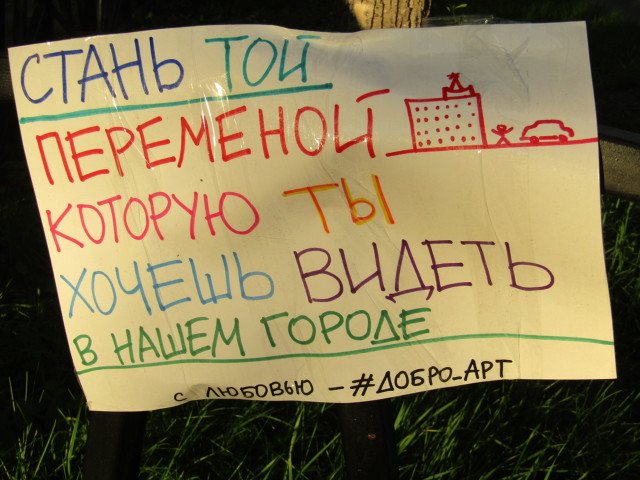 СТАНЬ ТОЙ
ПЕРЕМЕНОЙ
КОТОРУЮ ТЫ
ХОЧЕШЬ ВИДЕТЬ
В НАШЕМ ГОРОДЕ
С ЛЮБОВЬЮ - #ДОБРО_АРТ